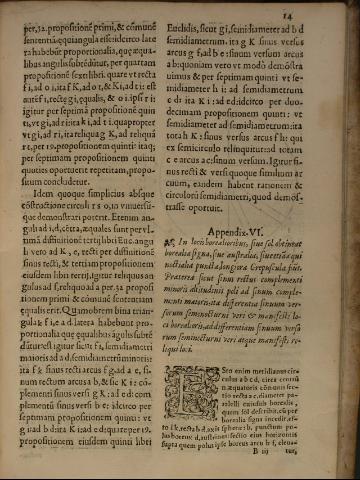 14
per.32.propositionē primi, & cōmunē
sententiā equiangula esse: idcirco late
ra habebūt proportionalia, quę æqua-
libus angulis subtēdūtur, per quartam
propositionē sexti libri. quare vt recta
f i, ad o i, ita f K, ad o r, & Ki, ad t i: est
autē f i, rectę g i, ęqualis, & o i. ipsi r i:
igitur per septimā propositionē quin
ti, vt g i, ad r i: ita k i, ad t i. quapropter
vt g i, ad r i, ita reliqua g K, ad reliquā
r t, per 19. propositionem quinti: itaq;
per septimam propositionem quinti
quoties oportuerit repetitam, propo-
situm concludetur.
Idem quoque simplicius absque
cōstructione circuli r s o, in vniuersū-
que demonstrari poterit. Etenim an-
guli a d i, d, cētra, æquales sunt per vl-
timā diffinitionē tertij libri Euc. angu
li vero ad K, e, recti per diffinitionē
sinus recti, & tertiam propositionem
eiusdem libri tertij, igitur reliquus an
gulus ad f, reliquo ad a per.32 proposi
tionem primi & cōmunē sententiam
equalis erit. Quamobrem bina trian-
gula k f i, e a d latera habebūt pro-
portionalia que equalibus āgulis subtē
dūtur: est igitur sicut f i, semidiametri
maioris ad a d, semidiametrū minoris:
ita f k sinus recti arcus f g, ad a e, si-
num rectum arcus a b, & sic K i: cō-
plementū sinus versi g K: ad e d: com
plementū sinus versi b e: idcirco per
septimam propositionem quinti: vt
g i: ad b d: ita K i: ad e d: quare per 19.
propositionem eiusdem quinti libri
Euclidis, sicut g i, semidiameter ad b d
semidiametrum. ita g K sinus versus
arcus g f, ad b e: sinum versum arcus
a b: quoniam vero vt modò demōstra
uimus & per septimam quinti vt se-
midiameter h i: ad semidiametrum
c d: ita K i: ad ed: idcirco per duo-
decimam propositionem quinti: vt
semidiameter ad semidiametrum: ita
tota h K: sinus versus arcus f h: qui
ex semicirculo relinquitur: ad totam
c e arcus a c: sinum versum. Igitur si-
nus recti & versi quoque similium ar
cuum, eandem habent rationem &
circulorū semidiametri, quod demōs-
trasse oportuit.
Appendix. VI.
In locis borealioribus, siue sol obtineat
borealia signa, siue australia, siue etiā equi
noctialia puncta, longiora Crepuscula fiūt.
Præterea sicut sinus rectus complementi
minoris altitudinis poli ad sinum comple-
menti maioris: ita differentia sinuum ver-
sorum seminocturni veri & manifesti lo-
ci borealioris, ad differentiam sinuum verso
rum seminocturni veri atque manifesti re-
liqui loci.
ESto enim meridianus cir
culus a b c d, circa centrū
e, æquatoris cōmunis sec-
tio recta a c, diameter pa-
ralelli cuiusuis borealis,
quem sol describit, cū per
borealia signa incedit, es-
to f k, recta b d, axis sphæræ: b, punctum po-
lus boreus: d, austrinus: sectio eius horizontis
supra quem polus ipse boreus arcu b f, eleua-
B iij
tur,